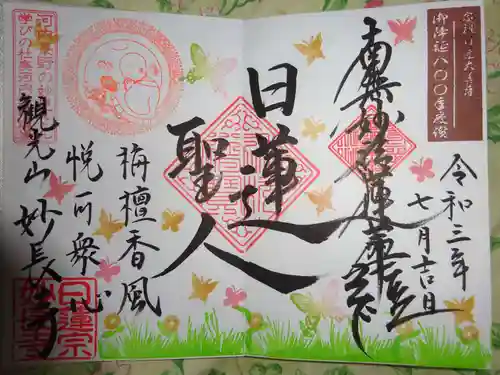 御降誕八〇〇年慶讃
令和三年
七月吉日
南無妙法蓮華経
日蓮
聖人
栴檀香風
悦可衆心
観光山 妙長寺
日蓮宗
妙長寺